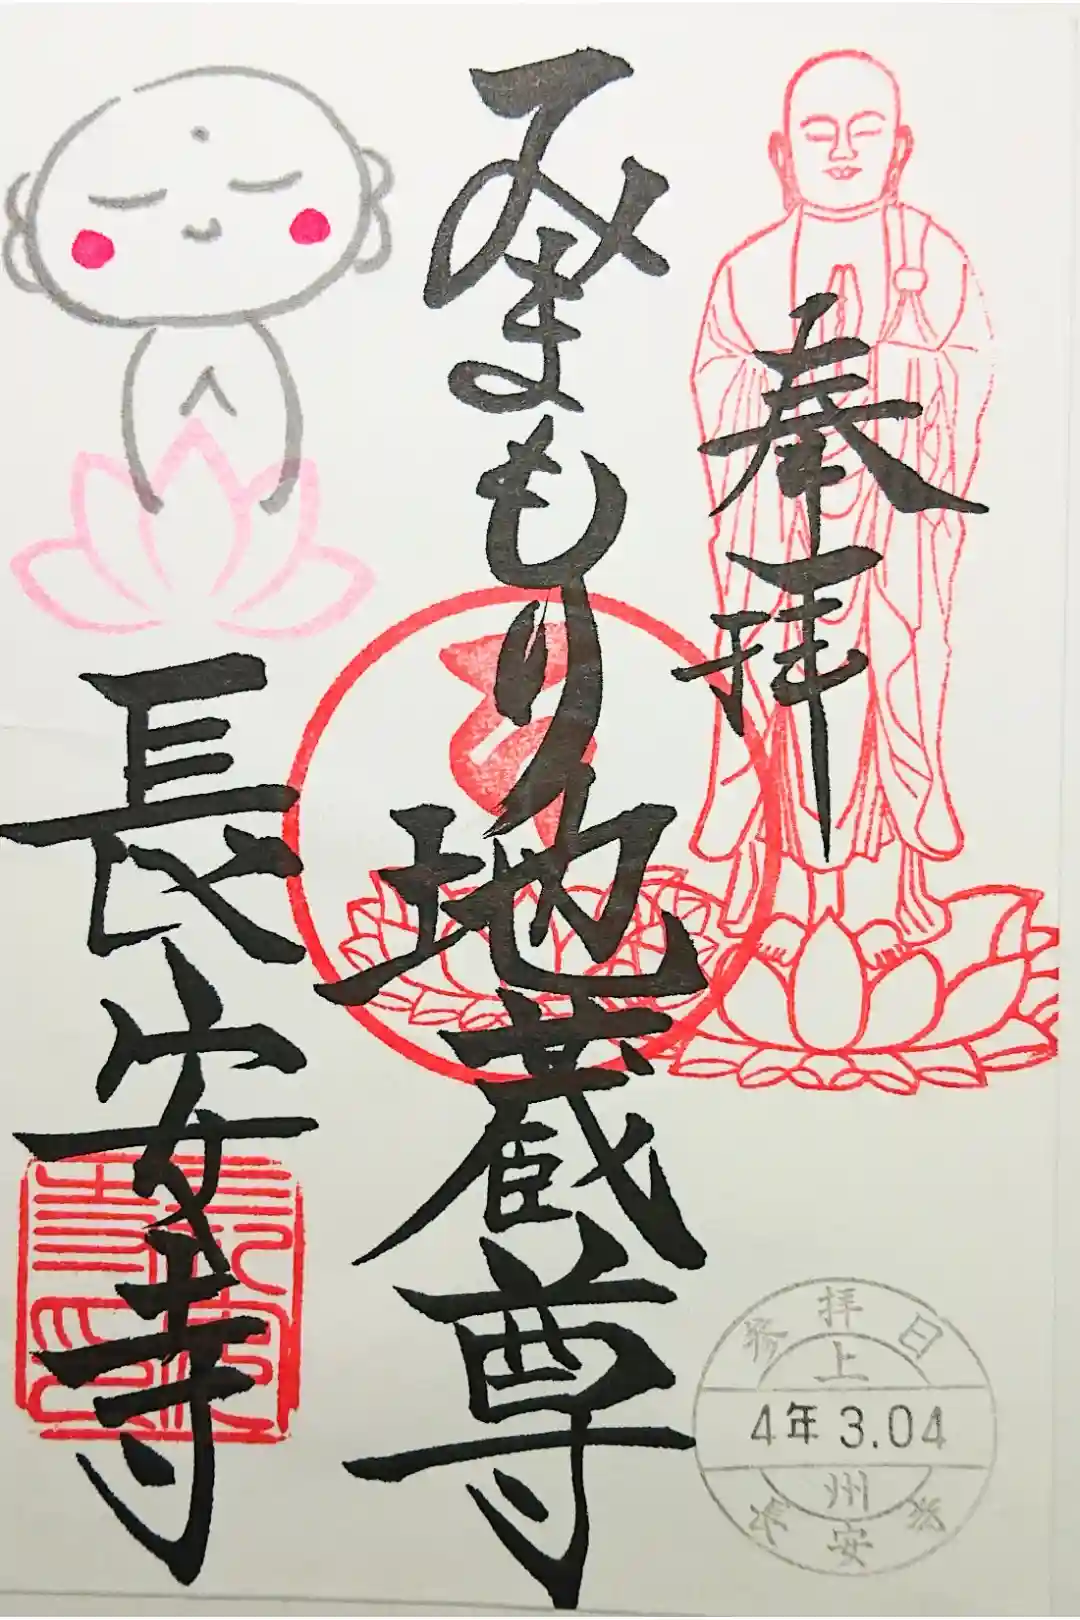 奉拝
みまもり地蔵尊
長安寺
参拝日
上
4年3.04
州
長安寺